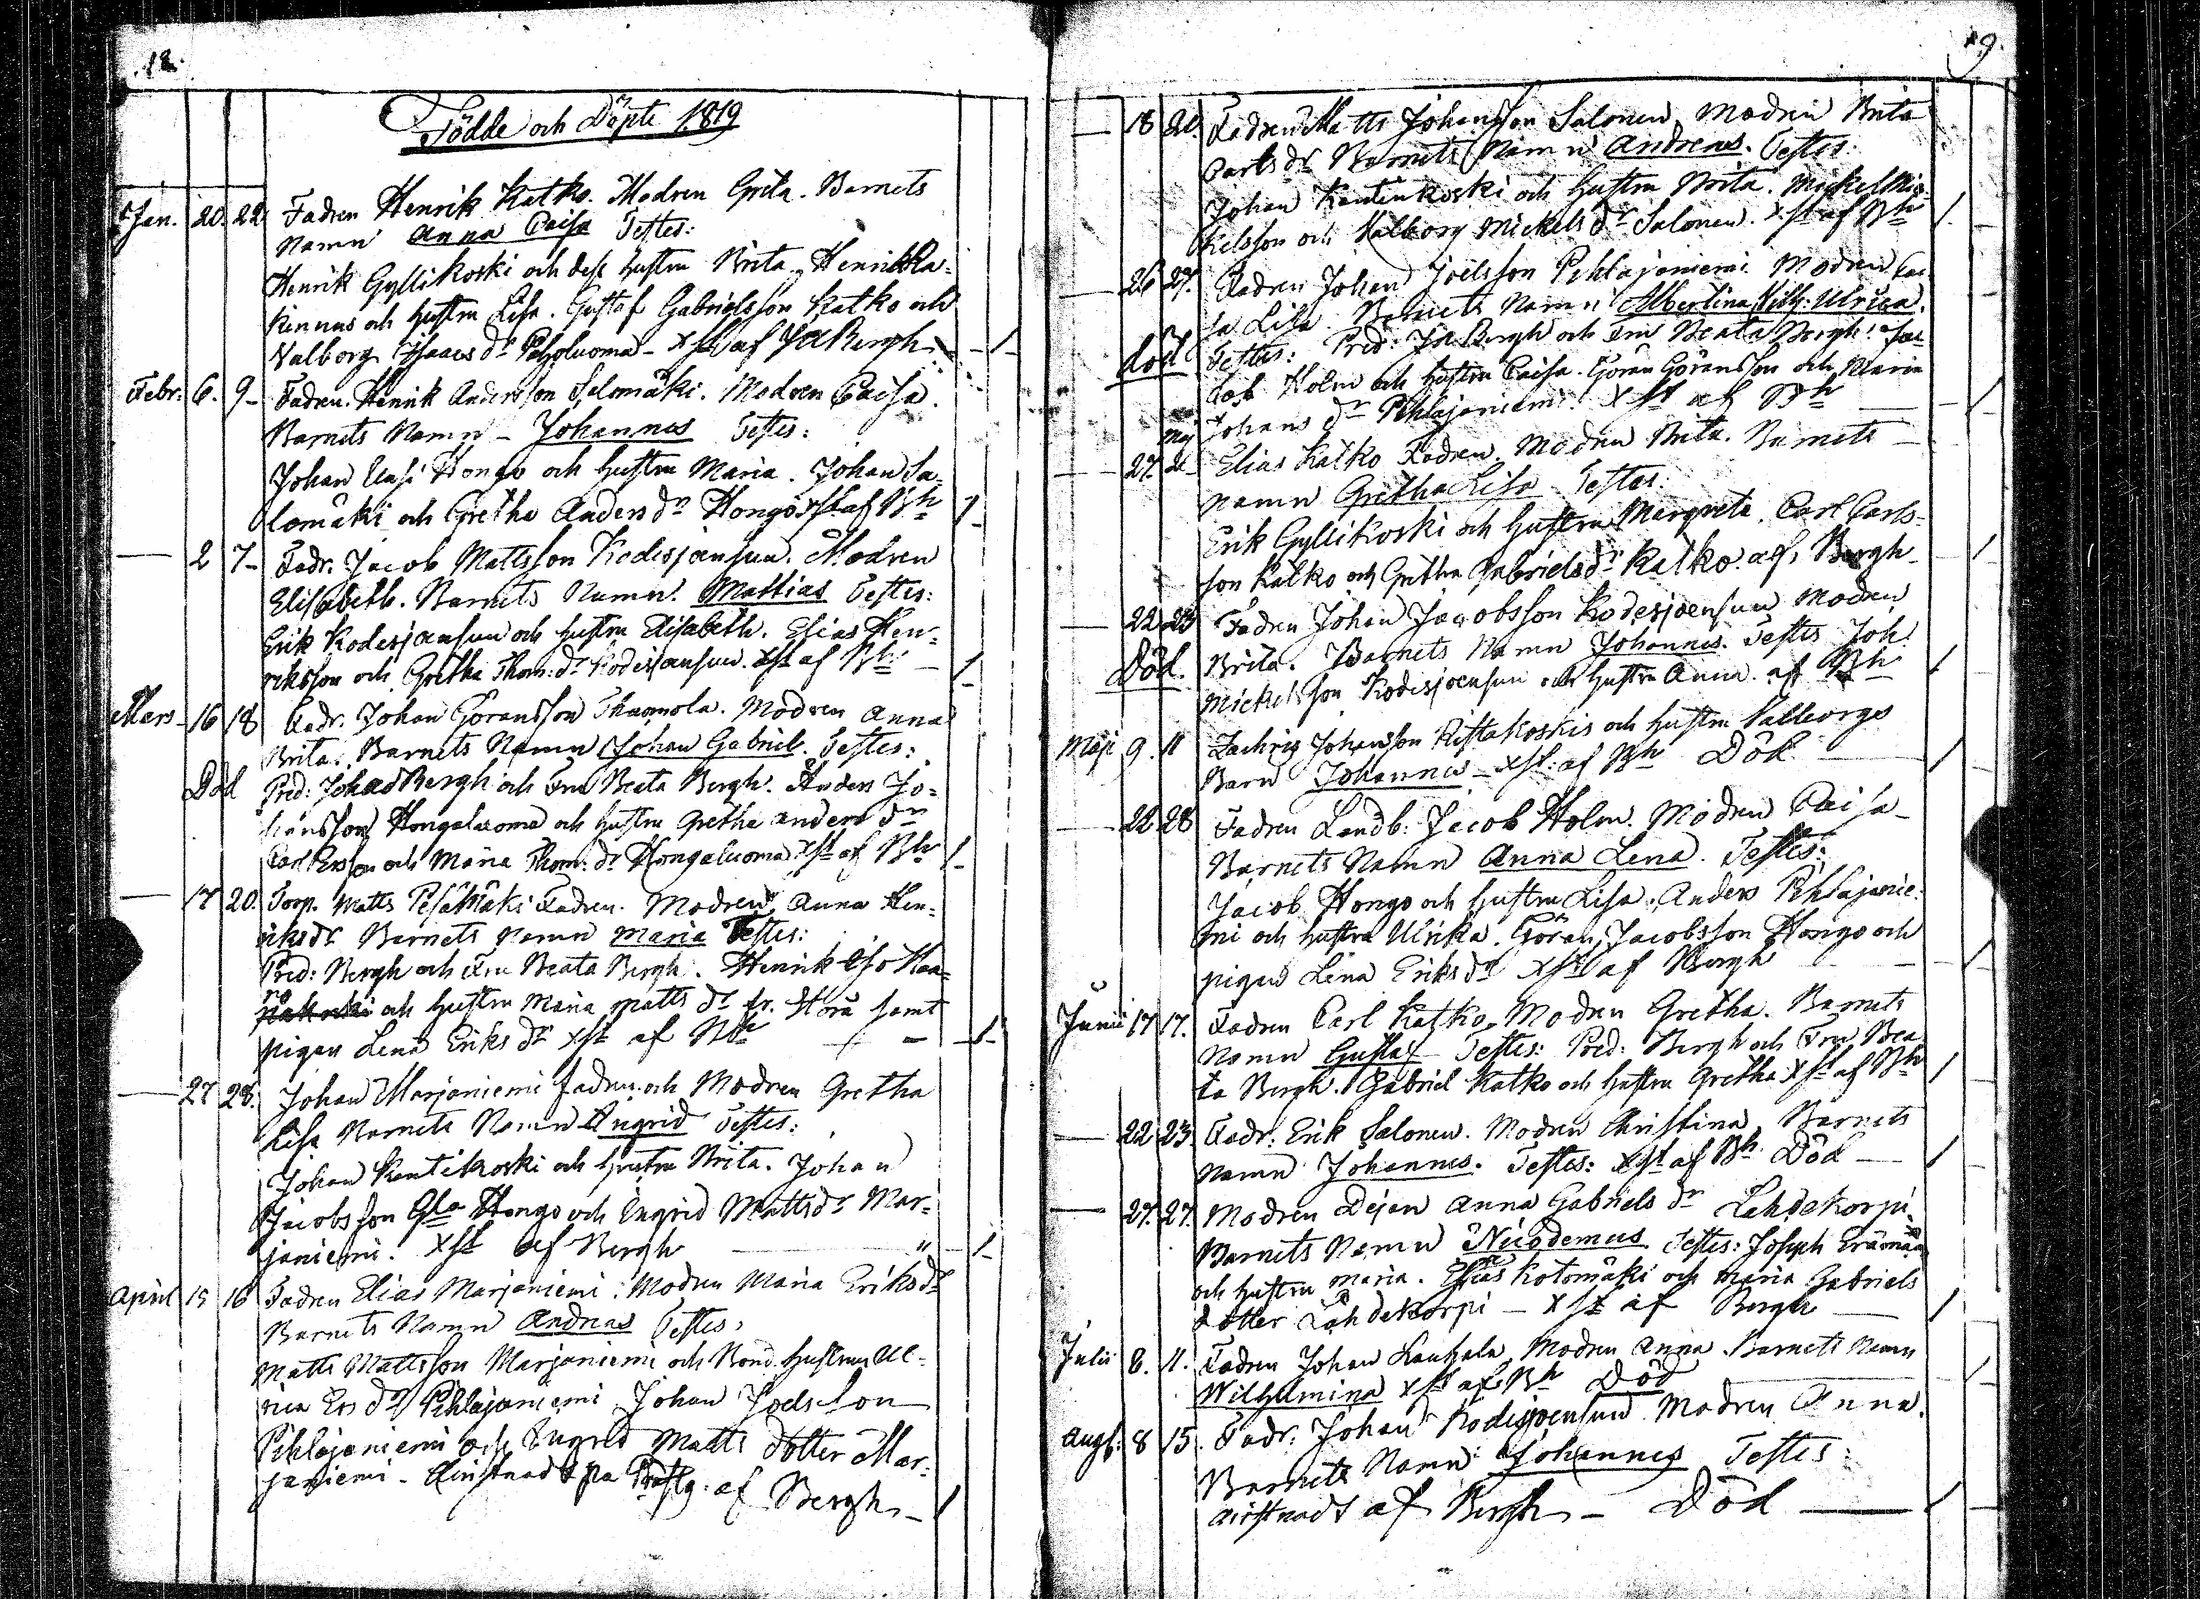 18.
Födde och Döpte 1819
Jan. 20. 22. Fadren Henrik Katko. Modren Greta. Barnets
Namn Anna Caisa Testes:
Henrik Gyllikoski och dess hustru Brita. Henrik Ra-
kinnus och hustru Lisa. Gustaf Gabrielsson Katko och
Valborg Isaacs dr Pohjoluoma - xst af JABergh
Febr: 6. 9- Fadren Henrik Andersson Salomäki. Modren Caisa.
Barnets Namn - Johannes Testes:
Johan Uusi Hongo och hustru Maria. Johan Sa-
lomäki och Gretha Anders dr Hongo xst af Bh
2 7- Fadr. Jacob Mattsson Kodesjoensuu. Modren
Elisabeth. Barnets Namn. Mattias Testes:
Erik Kodesjoensuu och hustru Elisabeth. Elias Hen-
riksson och Gretha Thom: dr Kodesjoensuu xst af Bh
Mars 16 18 Fadr. Johan Göransson Thuomola. Modren Anna
Brita. Barnets Namn Johan Gabriel. Testes:
Död Pred: Bergh och Fru Beata Bergh. Anders Jo-
hansson Hongaluoma och hustru Gretha Anders dr
Carl Ersson och Maria Thom: dr Hongaluoma xst af Bh
17 20. Torp. Matts Pesämäki Fadren. Modren Anna Hen-
riks dr Barnets Namn Maria Testes:
Pred: Bergh och Fru Beata Bergh. Henrik Iso
och hustru Maria Matts dr samt
pigan Lena Eriks dr xst af Bh
27 28. Johan Marjaniemi Fadren och Modren Gretha
Lisa Barnets Namn Ingrid Testes:
Johan Kentikoski och hustru Brita. Johan
Jacobsson Gla Hongo och Ingrid Mattsdr Mar-
janiemi. xst af Bergh "
April 15 16 Fadren Elias Marjaniemi. Modren Maria Eriksdr
Barnets Namn Andreas Testes:
Matts Mattsson Marjaniemi och Bond. hustrun Ul-
rica Ers dr Pihlajaniemi Johan Joelsson
Pihlajaniemi och Ingrid Matts dotter Mar-
janiemi. Christnadt på af Bergh
19.
18 20. Fadren Matts Johansson Salonen Modren Brita
Carls dr Barnets Namn Andreas. Testes:
Johan Kentinkoski och hustru Brita. Mickel Mic-
kelsson och Walborg Mickels dr Salonen. xst af Bh
26 27. Fadren Johan Joelsson Pihlajaniemi Modren Cai
sa Lisa. Barnets Namn Albertina Vilh: Ulrica.
död Testes: Pred: JABergh och Fru Beata Bergh. Jac-
cob Holm och hustru Caisa. Göran Göransson och Maria
Johans dr Pihlajaniemi. xst af Bh
Maj
27. Elias Katko Fadren. Modren Brita. Barnets
namn Gretha Lisa Testes:
Erik Gyllikoski och hustru Margreta. Carl Carls-
son Katko och Gretha Gabrielsdr Katko af. Bergh
22 23 Fadren Johan Jacobsson Kodesjoensuu Modren
Död. Brita. Barnets Namn Johannes. Testes Joh:
Mickelsson Kodesjoensuu och hustru Anna. af Bh
Maji 9. 11 Zachris Johansson Ristakoskis och hustru Valborgs
Barn Johannes - xst. af Bh Död
22 28 Fadren Landb: Jacob Holm. Modren Caisa
Barnets Namn Anna Lena. Testes:
Jacob Hongo och hustru Lisa, Anders Pihlajanie-
mi och hustru Ulrika. Göran Jacobsson Hongo och
pigan Lena Eriks dr xst af Bergh
Junii 17 17. Fadren Carl Katko. Modren Gretha. Barnets
Namn Gustaf Testes: Pred: Bergh och Fru Bea-
ta Bergh. Gabriel Katko och hustru Gretha xst af Bh
22 23. Fadr: Erik Salonen. Modren Christina Barnets
Namn Johannes. Testes: xst af Bh. Död
27. 27. Modren Dejan Anna Gabriels dr Lahdekorpi.
Barnets Namn Nicodemus Testes: Joseph Erämaa
och hustru Maria. Elias Kotomäki och Maria Gabriels
dotter Lahdekorpi - xst af Bergh
Julii 8. 11. Fadren Johan Lauhala Modren Anna. Barnets Namn
Wilhelmina xst af Bh Död
Augs: 8 15. Fadr. Johan Kodesjoensuu Modren Anna.
Barnets Namn Johannes Testes:
Christnadt af Bergh - Död